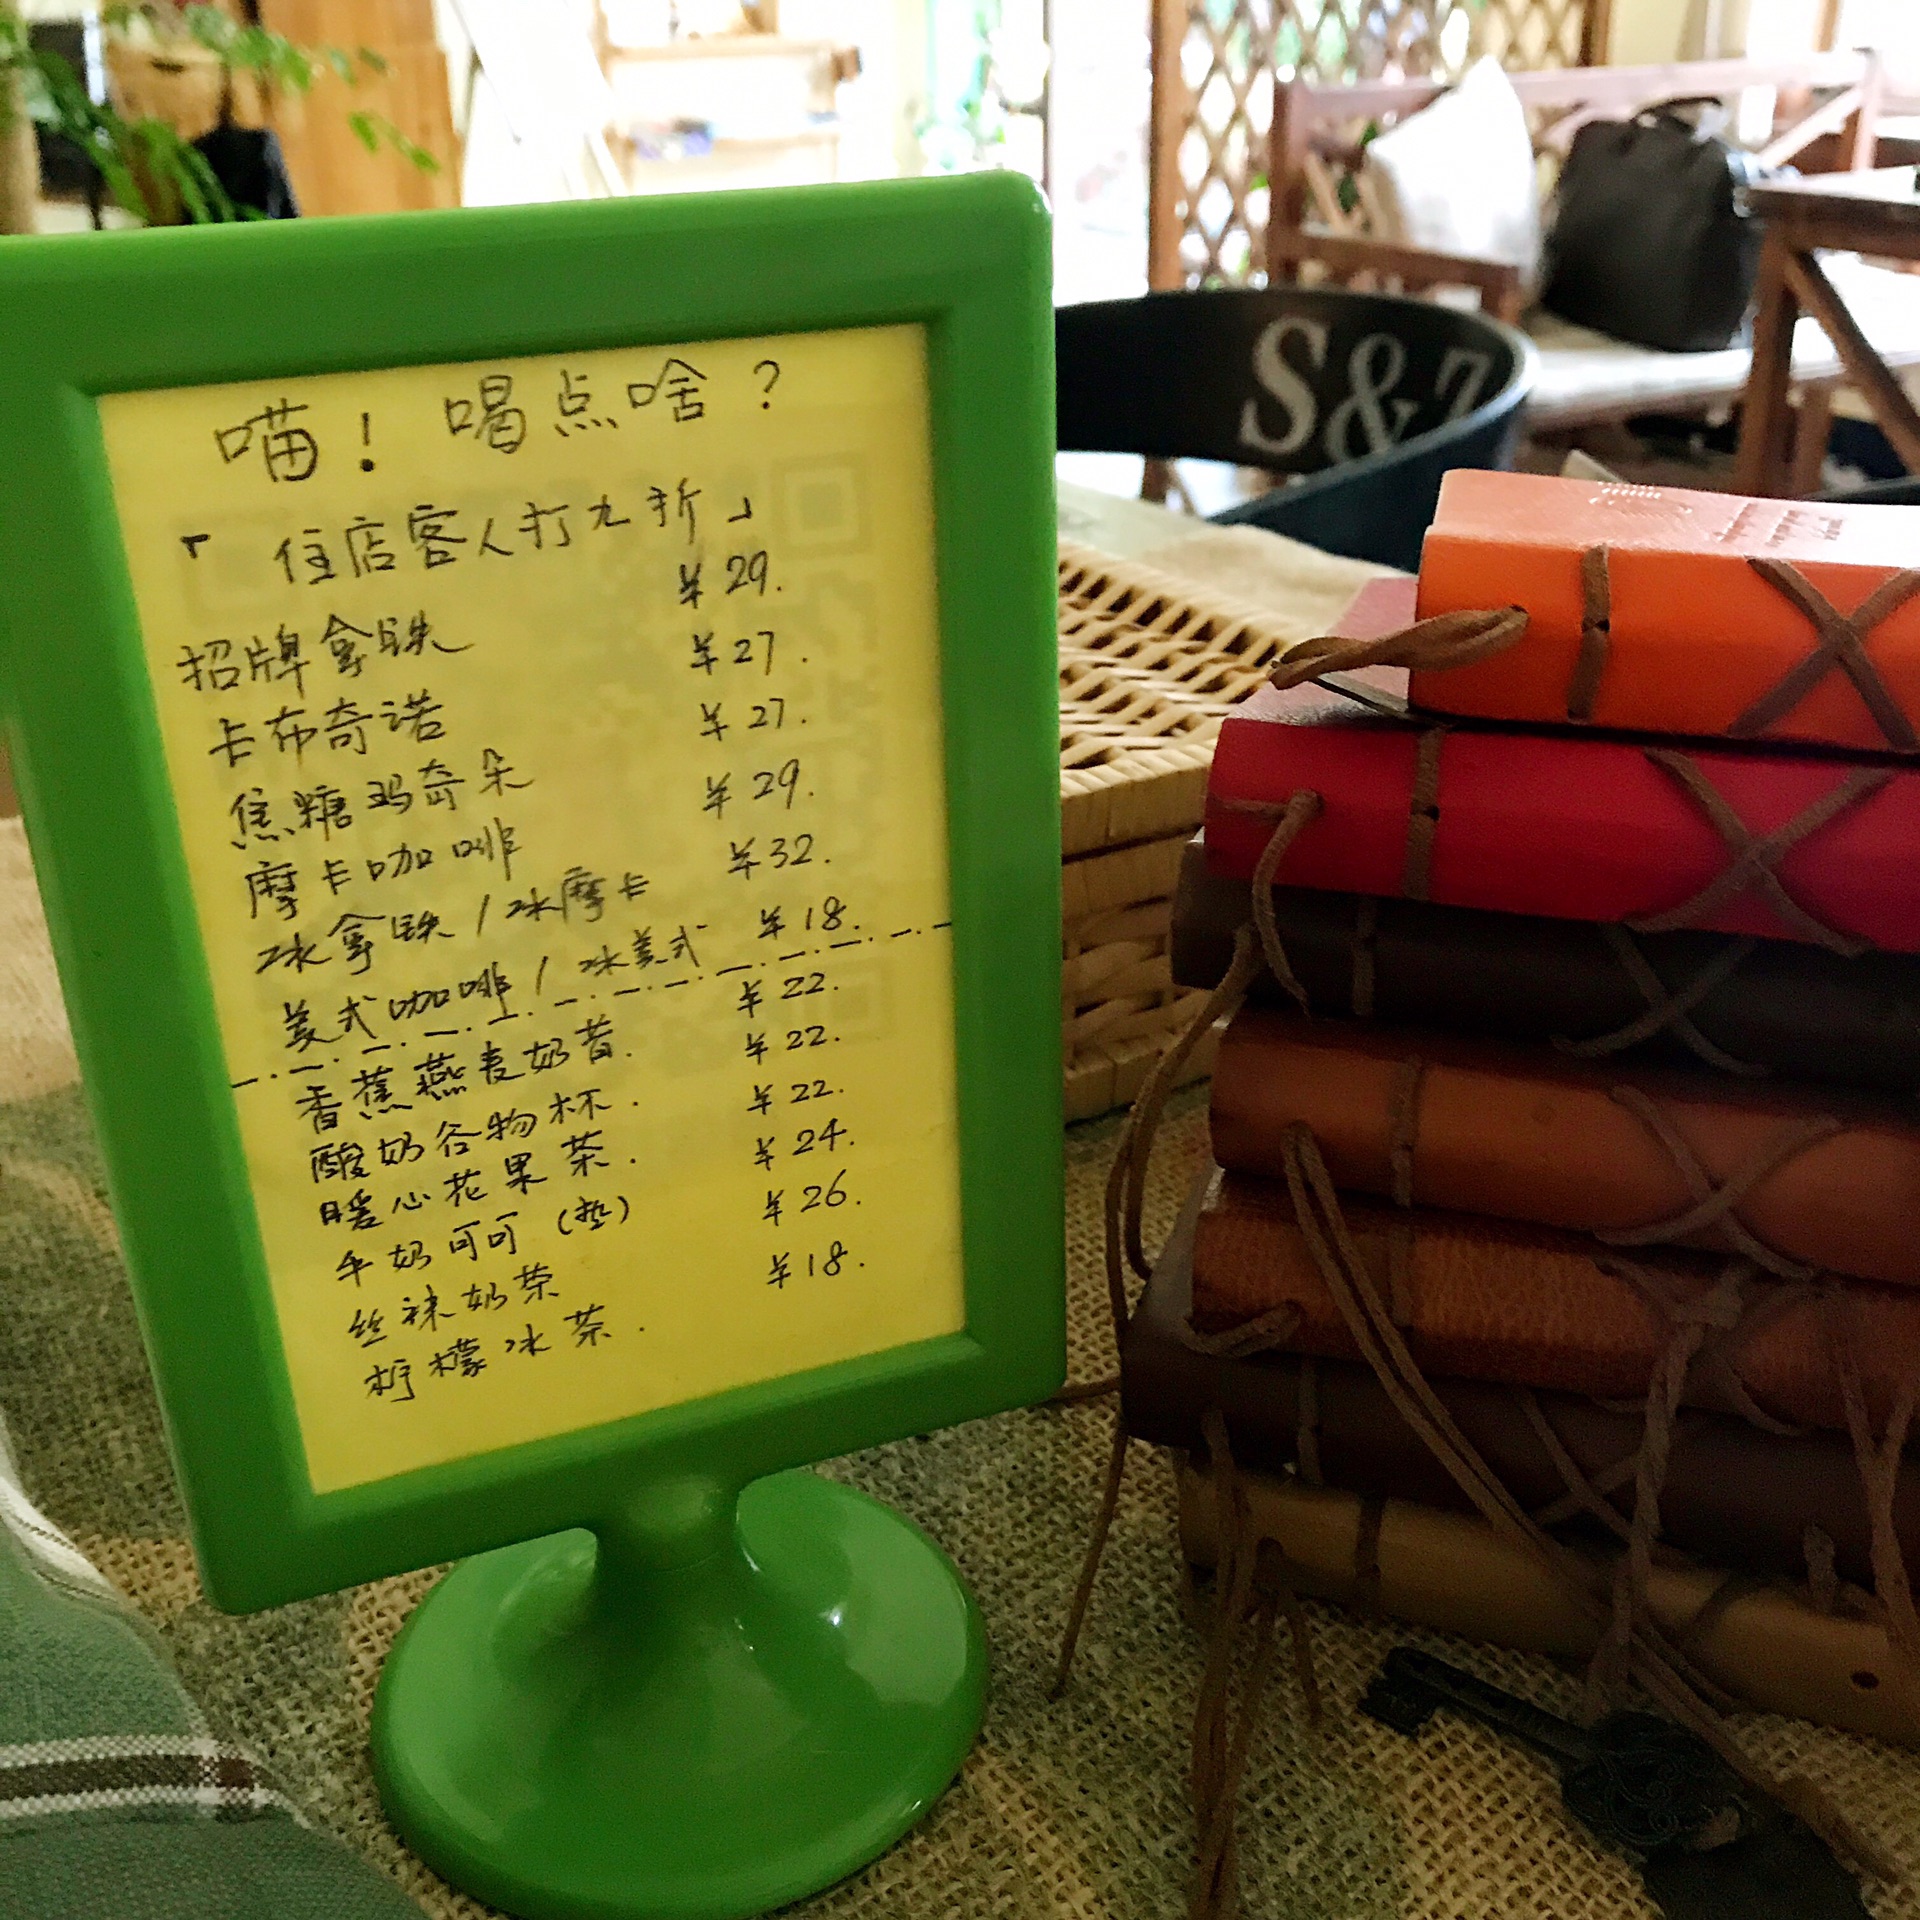 喵！喝点啥？
「住店客人打九折」
招牌拿铁 ¥29.
卡布奇诺 ¥27.
焦糖玛奇朵 ¥27.
摩卡咖啡 ¥29.
冰拿铁/冰摩卡 ¥32.
美式咖啡/冰美式 ¥18.
香蕉燕麦奶昔. ¥22.
酸奶谷物杯. ¥22.
暖心花果茶. ¥22.
牛奶可可(热) ¥24.
丝袜奶茶 ¥26.
柠檬冰茶. ¥18.
S&